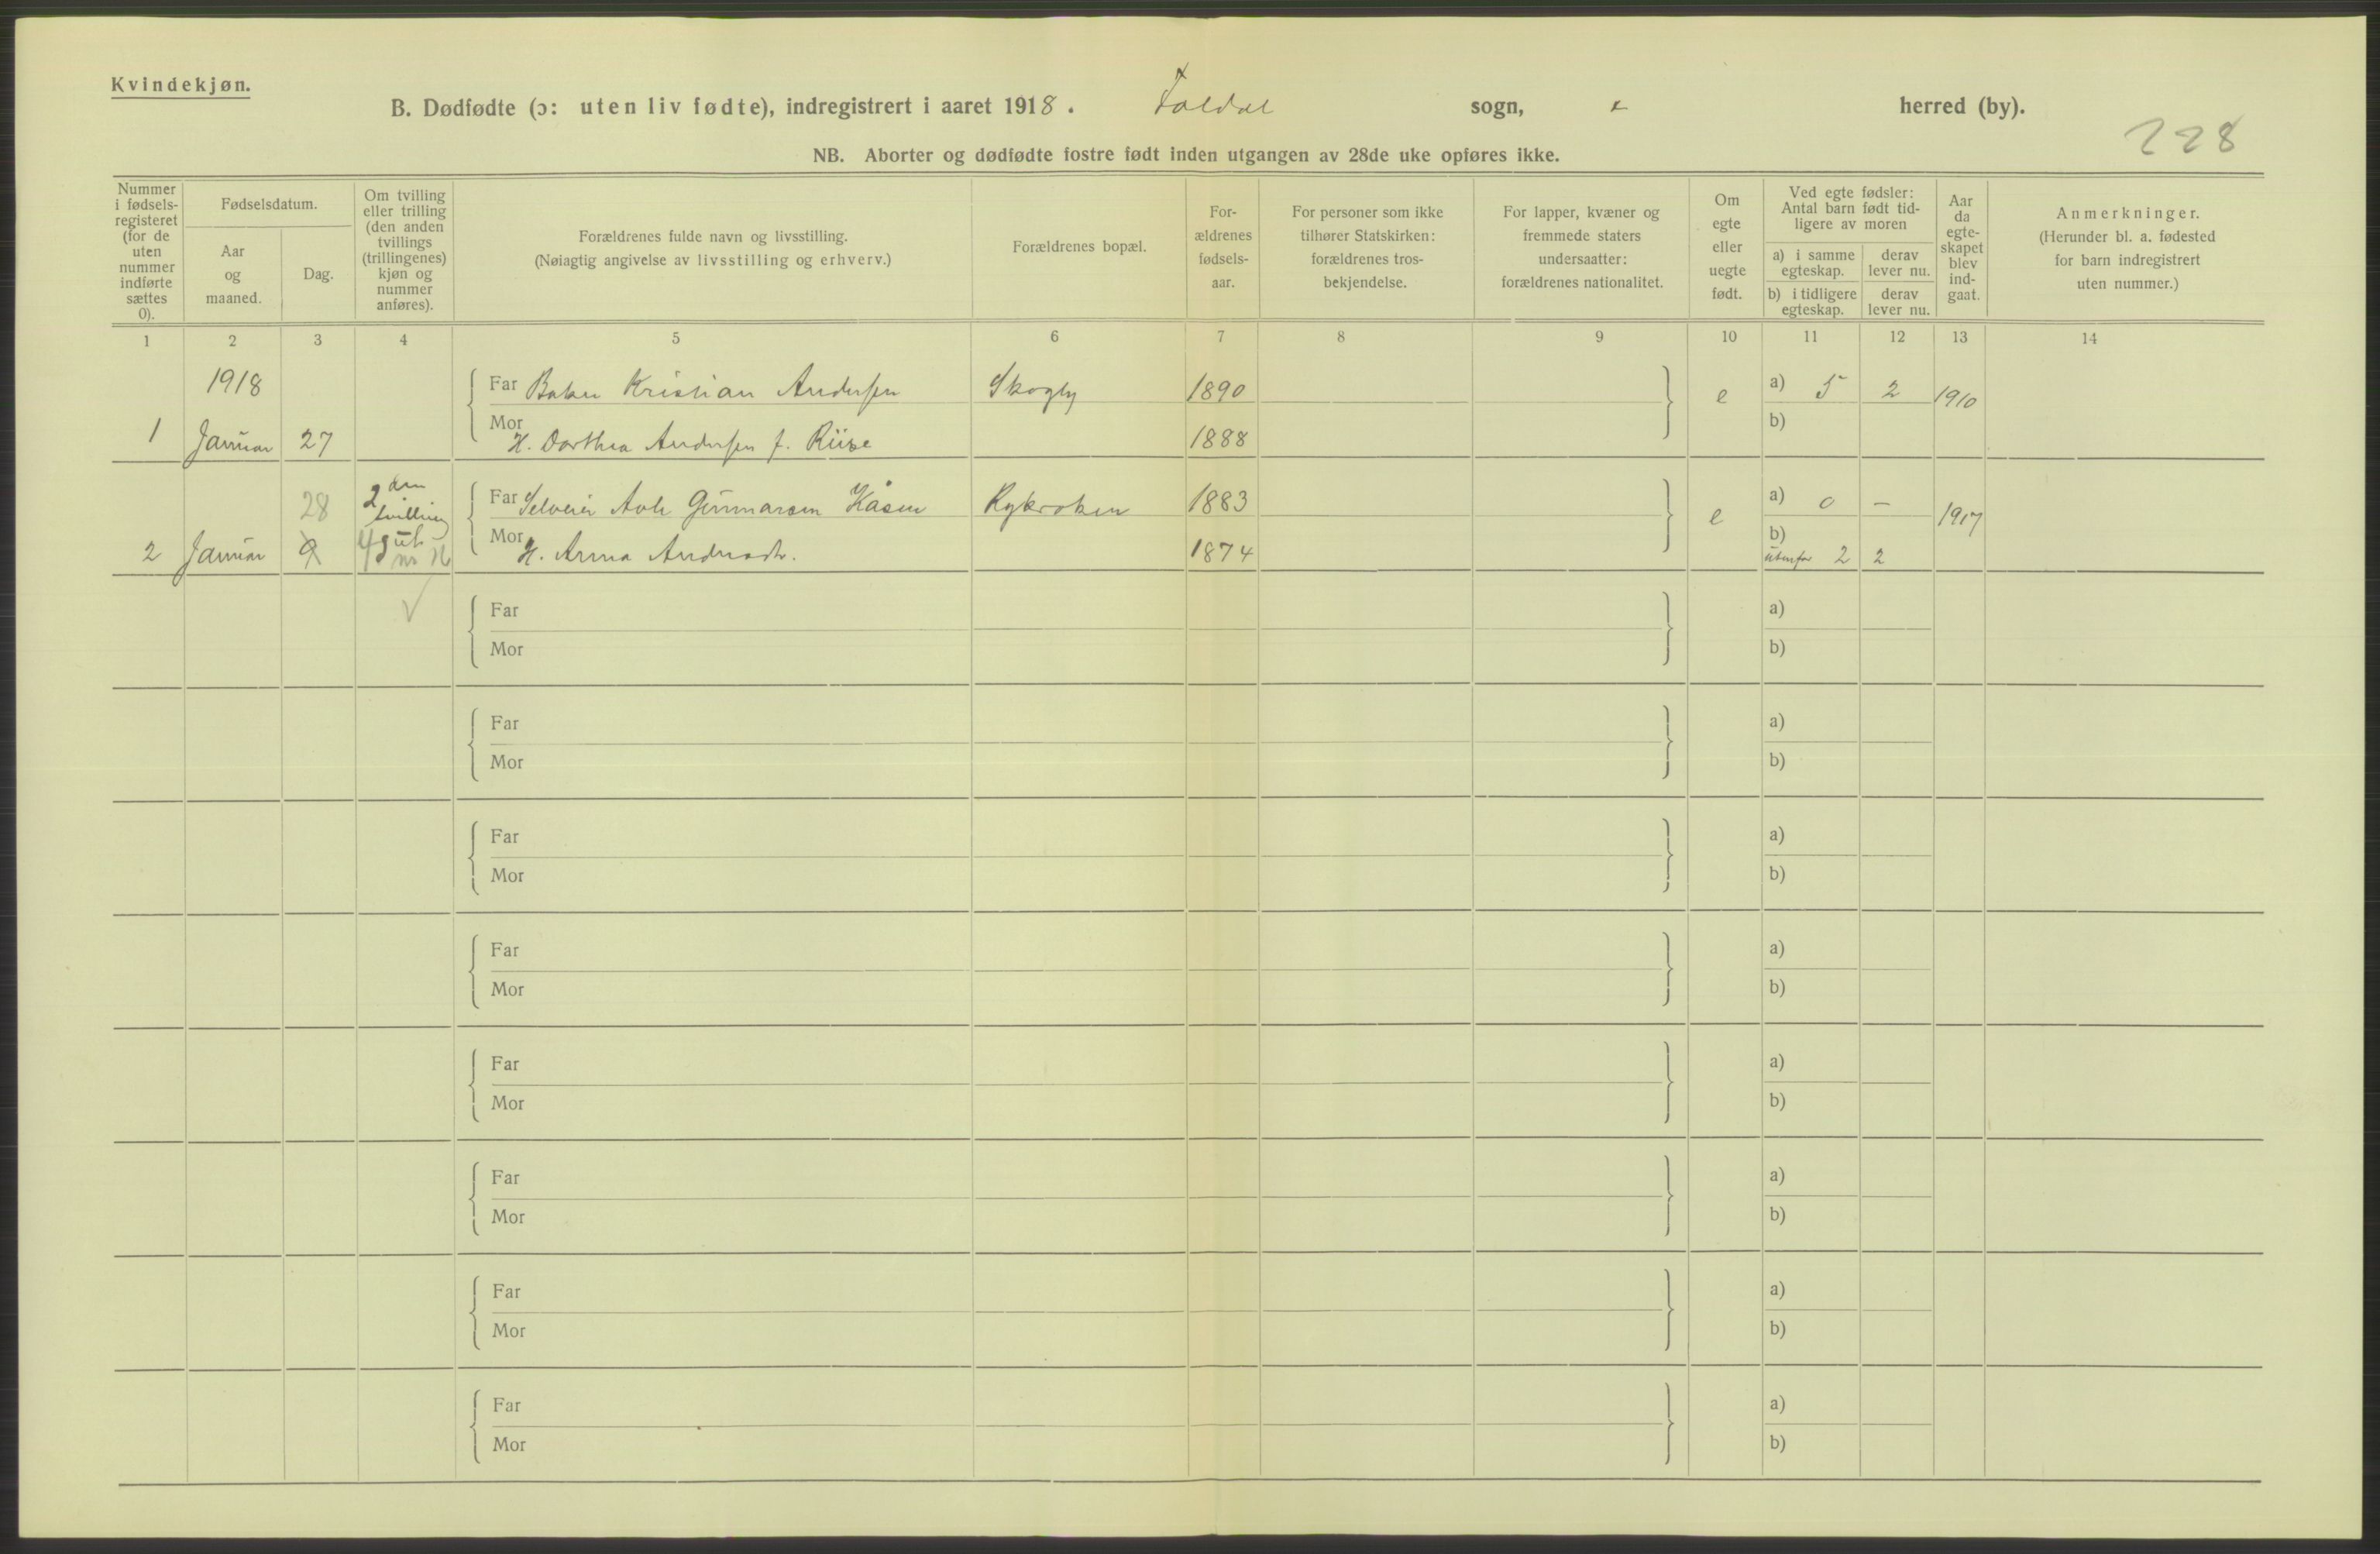 Kvindekjøn.
B. Dødfødte (ɔ: uten liv fødte), indregistrert i aaret 1918. Foldal sogn, herred (by).
228
NB. Aborter og dødfødte fostre født inden utgangen av 28de uke opføres ikke.
Nummer i fødsels-registeret (for de uten nummer indførte sættes 0).
Fødselsdatum.
Aar og maaned.
Dag.
Om tvilling eller trilling (den anden tvillings (trillingenes) kjøn og nummer anføres).
Forældrenes fulde navn og livsstilling.
(Nøiagtig angivelse av livsstilling og erhverv.)
Forældrenes bopæl.
For-ældrenes fødsels-aar.
For personer som ikke tilhører Statskirken: forældrenes tros-bekjendelse.
For lapper, kvæner og fremmede staters undersaatter: forældrenes nationalitet.
Om egte eller uegte født.
Ved egte fødsler: Antal barn født tid-ligere av moren
a) i samme egteskap.
derav lever nu.
b) i tidligere egteskap.
derav lever nu.
Aar da egte-skapet blev ind-gaat.
Anmerkninger.
(Herunder bl. a. fødested for barn indregistrert uten nummer.)
1 2 3 4 5 6 7 8 9 10 11 12 13 14
1918 Far Kristian Andersen Skogly 1890 e a) 5 2 1910
1 Januar 27 Mor H. Dorthea Andersen f. 1888 b)
28 2 den tvilling Far Gunnarsen Kåsen 1883 e a) 0 – 1917
2 Januar 9 gut Mor H. Anna 1874 b) utenfor 2 2
Far a)
Mor b)
Far a)
Mor b)
Far a)
Mor b)
Far a)
Mor b)
Far a)
Mor b)
Far a)
Mor b)
Far a)
Mor b)
Far a)
Mor b)